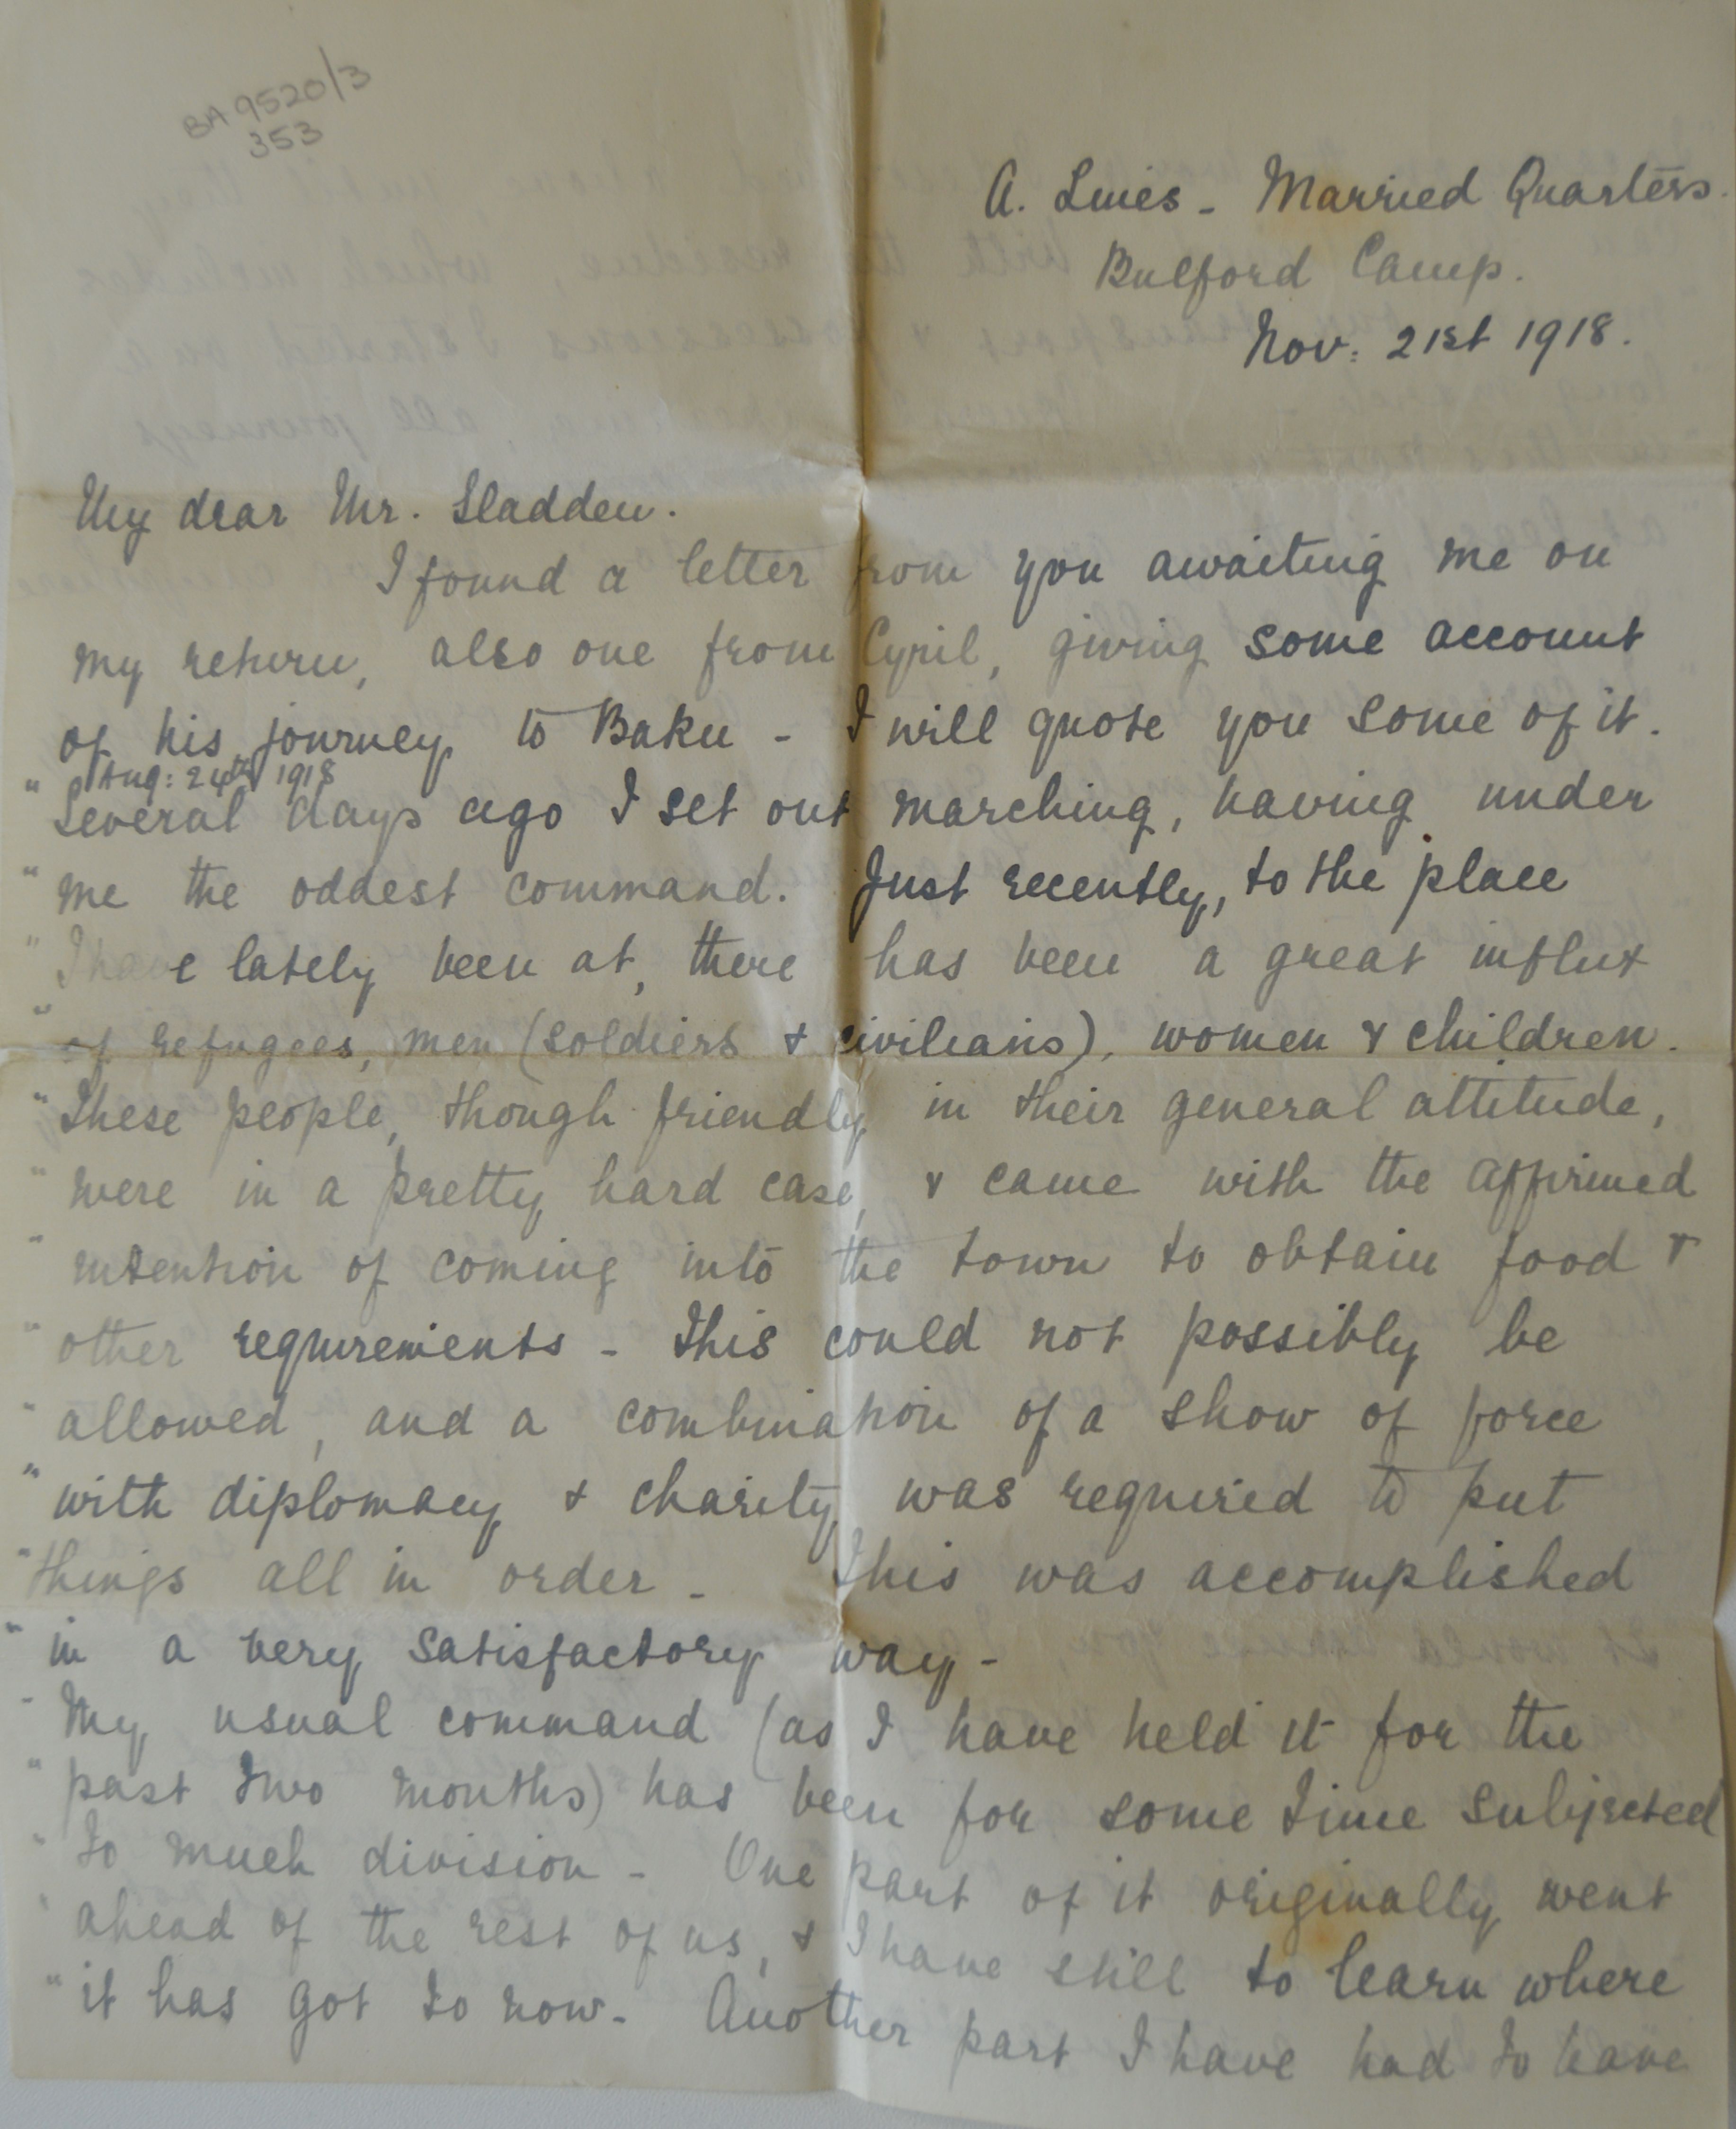 BA 9520/3
353
A. Lines - Married Quarters.
Bulford Camp.
Nov: 21st 1918.
My dear Mr. Sladden.
I found a letter from you awaiting me on
my return, also one from Cyril, giving some account
of his journey to Baku - I will quote you some of it.
" Aug: 24th 1918
Several days ago I set out marching, having under
" me the oddest command. Just recently, to the place
" I have lately been at, there has been a great influx
" of refugees, men (soldiers & civilians), women & children.
" These people, though friendly in their general attitude,
" were in a pretty hard case, & came with the affirmed
" intention of coming into the town to obtain food &
" other requirements - This could not possibly be
" allowed, and a combination of a show of force
" with diplomacy & charity was required to put
" things all in order - This was accomplished
" in a very satisfactory way -
" My usual command (as I have held it for the
" past two months) has been for some time subjected
" to much division - One part of it originally went
" ahead of the rest of us, & I have still to learn where
" it has got to now - Another part I have had to leave